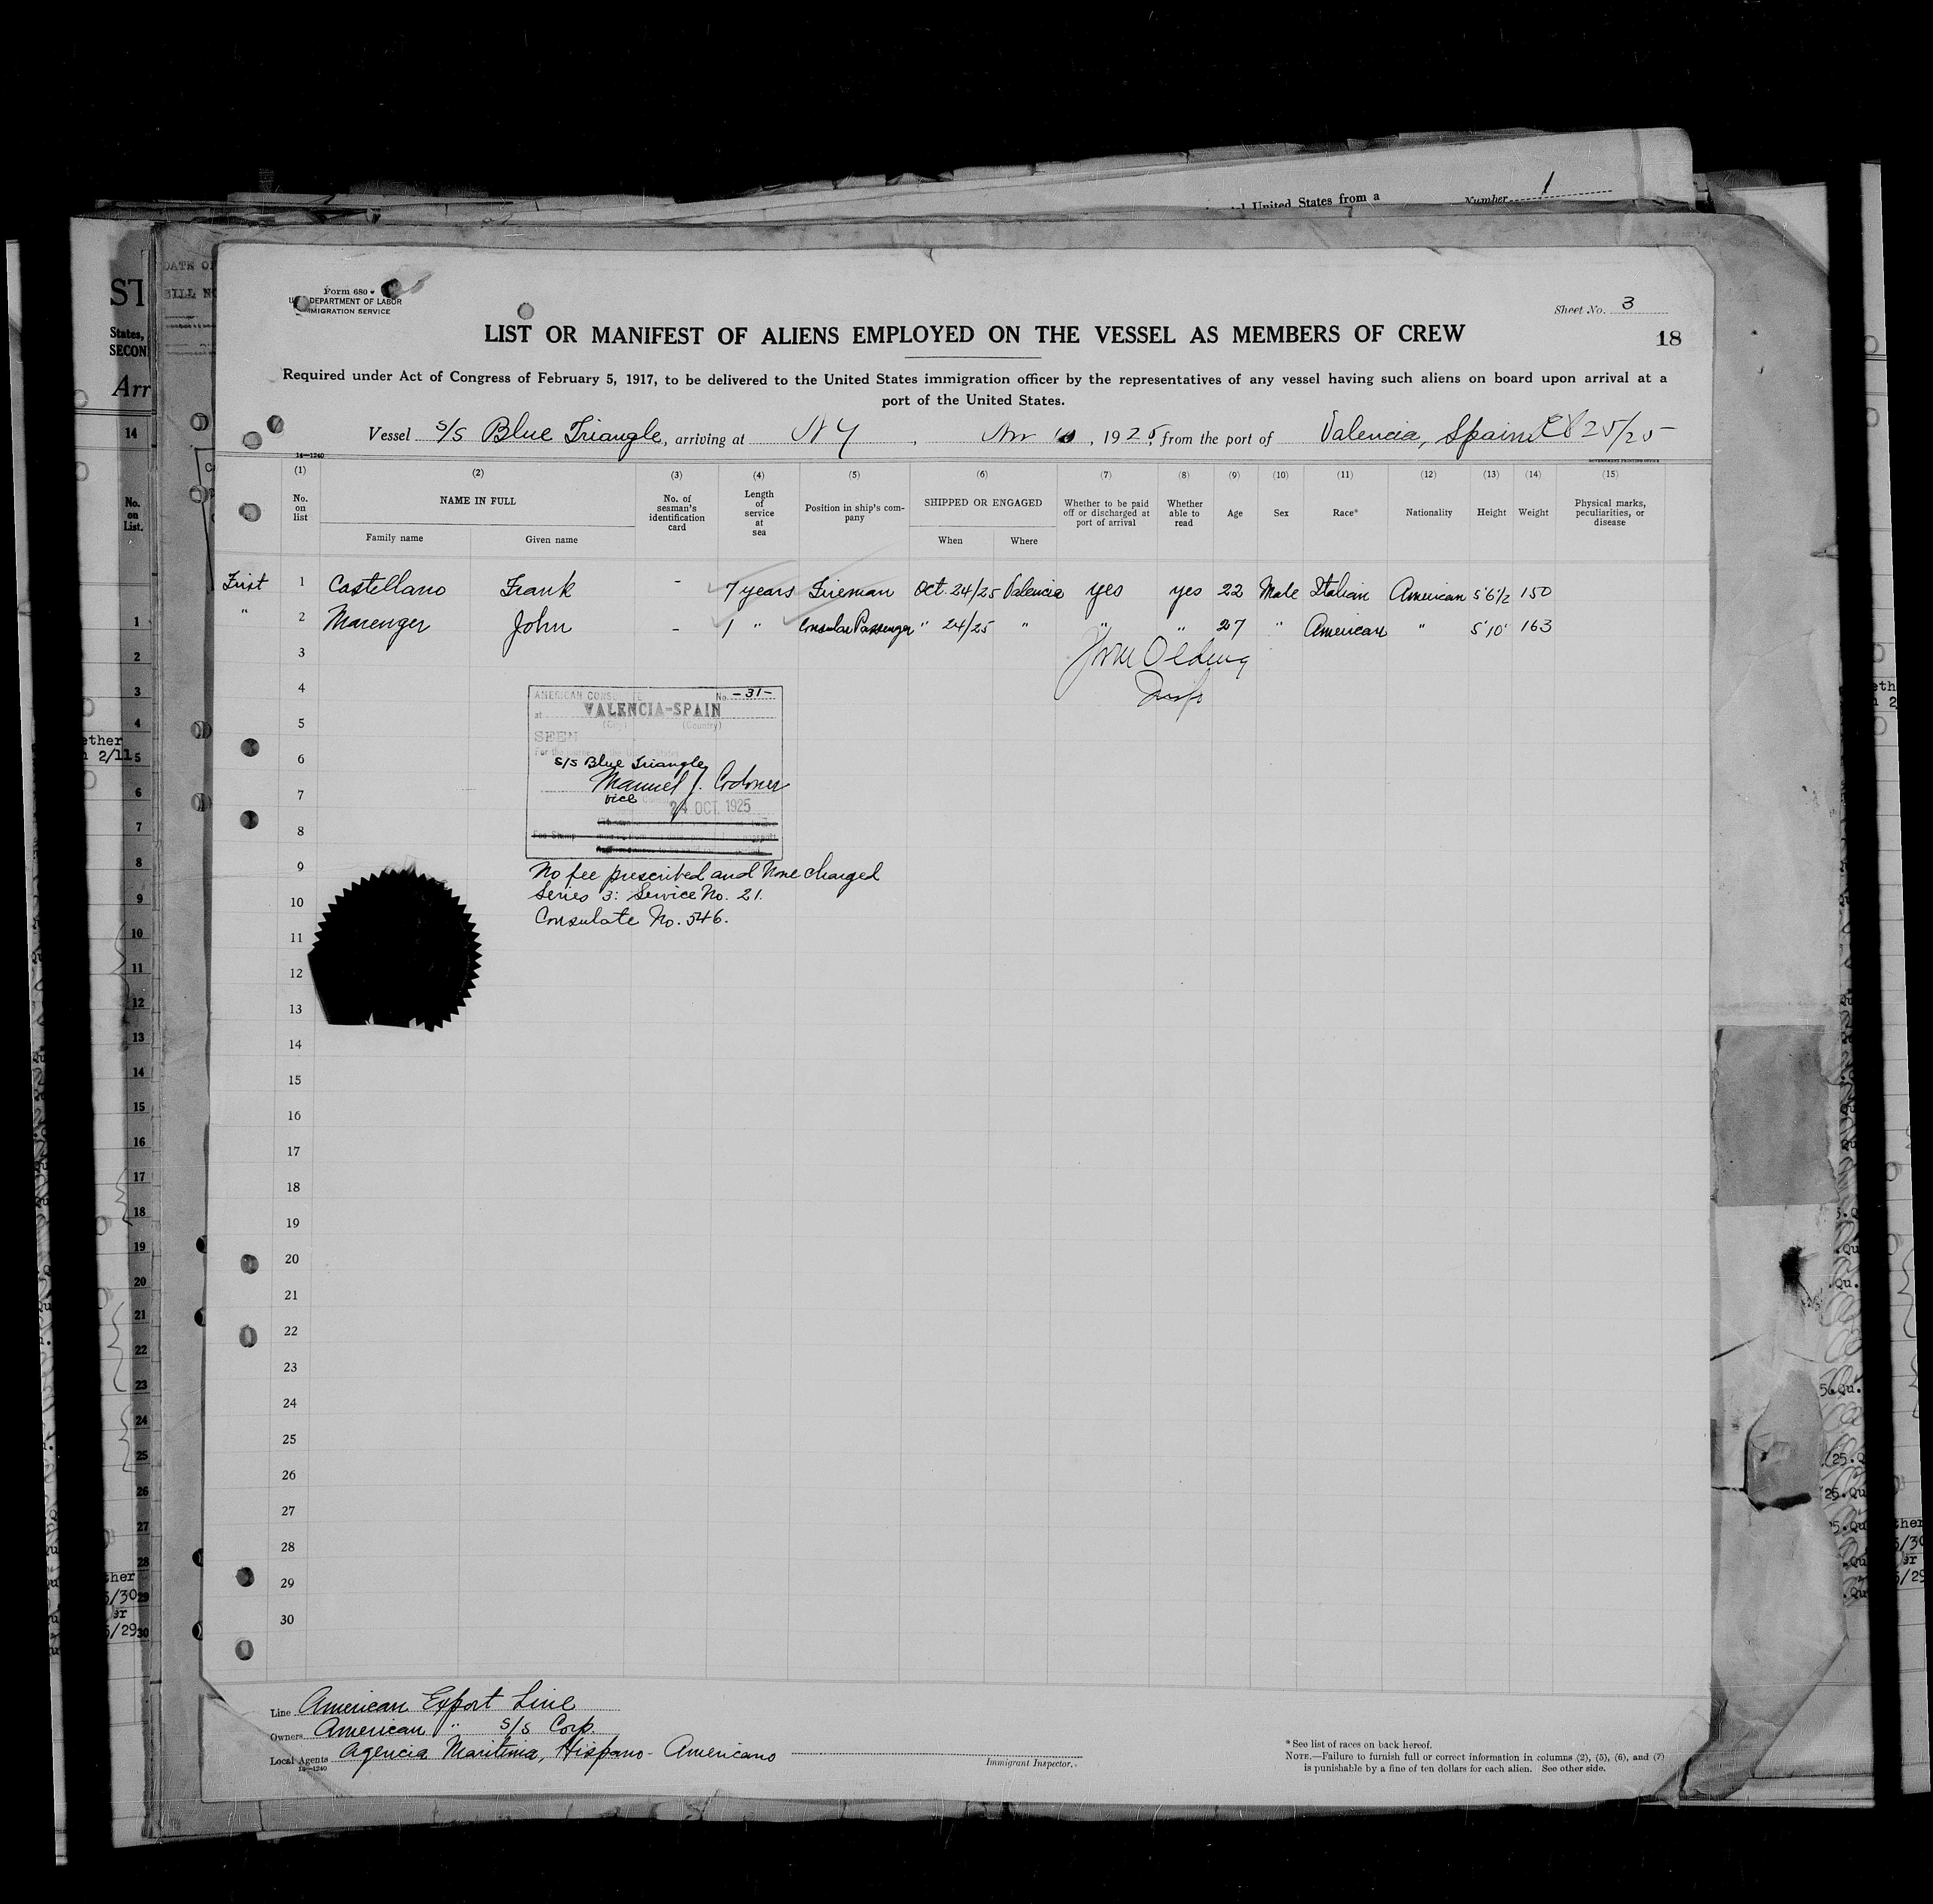 United States from a Number 1
Form 680
DEPARTMENT OF LABOR
IMMIGRATION SERVICE
Sheet No. 3
LIST OR MANIFEST OF ALIENS EMPLOYED ON THE VESSEL AS MEMBERS OF CREW
18
Required under Act of Congress of February 5, 1917, to be delivered to the United States immigration officer by the representatives of any vessel having such aliens on board upon arrival at a
port of the United States.
Vessel S/S Blue Triangle, arriving at N Y, Nov 10, 1925, from the port of Valencia, Spain 25/25
14—1240
GOVERNMENT PRINTING OFFICE
(1) (2) (3) (4) (5) (6) (7) (8) (9) (10) (11) (12) (13) (14) (15)
No. on list
NAME IN FULL
Family name
Given name
No. of seaman's identification card
Length of service at sea
Position in ship's company
SHIPPED OR ENGAGED
When
Where
Whether to be paid off or discharged at port of arrival
Whether able to read
Age
Sex
Race*
Nationality
Height
Weight
Physical marks, peculiarities, or disease
First 1 Castellano Frank - 7 years Fireman Oct. 24/25 Valencia yes yes 22 Male Italian American 5'6½ 150
" 2 Marenger John - 1 " Consular Passenger " 24/25 " " " 27 " American " 5'10' 163
3
4
5
6
7
8
9
10
11
12
13
14
15
16
17
18
19
20
21
22
23
24
25
26
27
28
29
30
AMERICAN CONSULATE No. -31-
at VALENCIA-SPAIN
(City) (Country)
SEEN
For the journey to the United States
S/S Blue Triangle
Manuel J. Codoner
vice
24 OCT. 1925
Fee Stamp
No fee prescribed and None charged
Series 3: Service No. 21.
Consulate No. 546.
Line American Export Line
Owners American " S/S Corp.
Local Agents Agencia Maritima, Hispano-Americano
14—1240
Immigrant Inspector.
* See list of races on back hereof.
NOTE.—Failure to furnish full or correct information in columns (2), (5), (6), and (7)
is punishable by a fine of ten dollars for each alien. See other side.